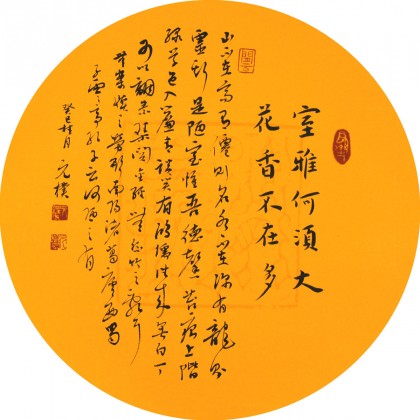 室雅何須大
花香不在多
山不在高有僊則名水不在深有龍則
靈斯是陋室惟吾德馨苔痕上階
綠草色入簾青談笑有鴻儒往來無白丁
可以調素琴閱金經無絲竹之亂耳
無案牘之勞形南陽諸葛廬西蜀
子雲亭孔子云何陋之有
癸巳桂月 元樸